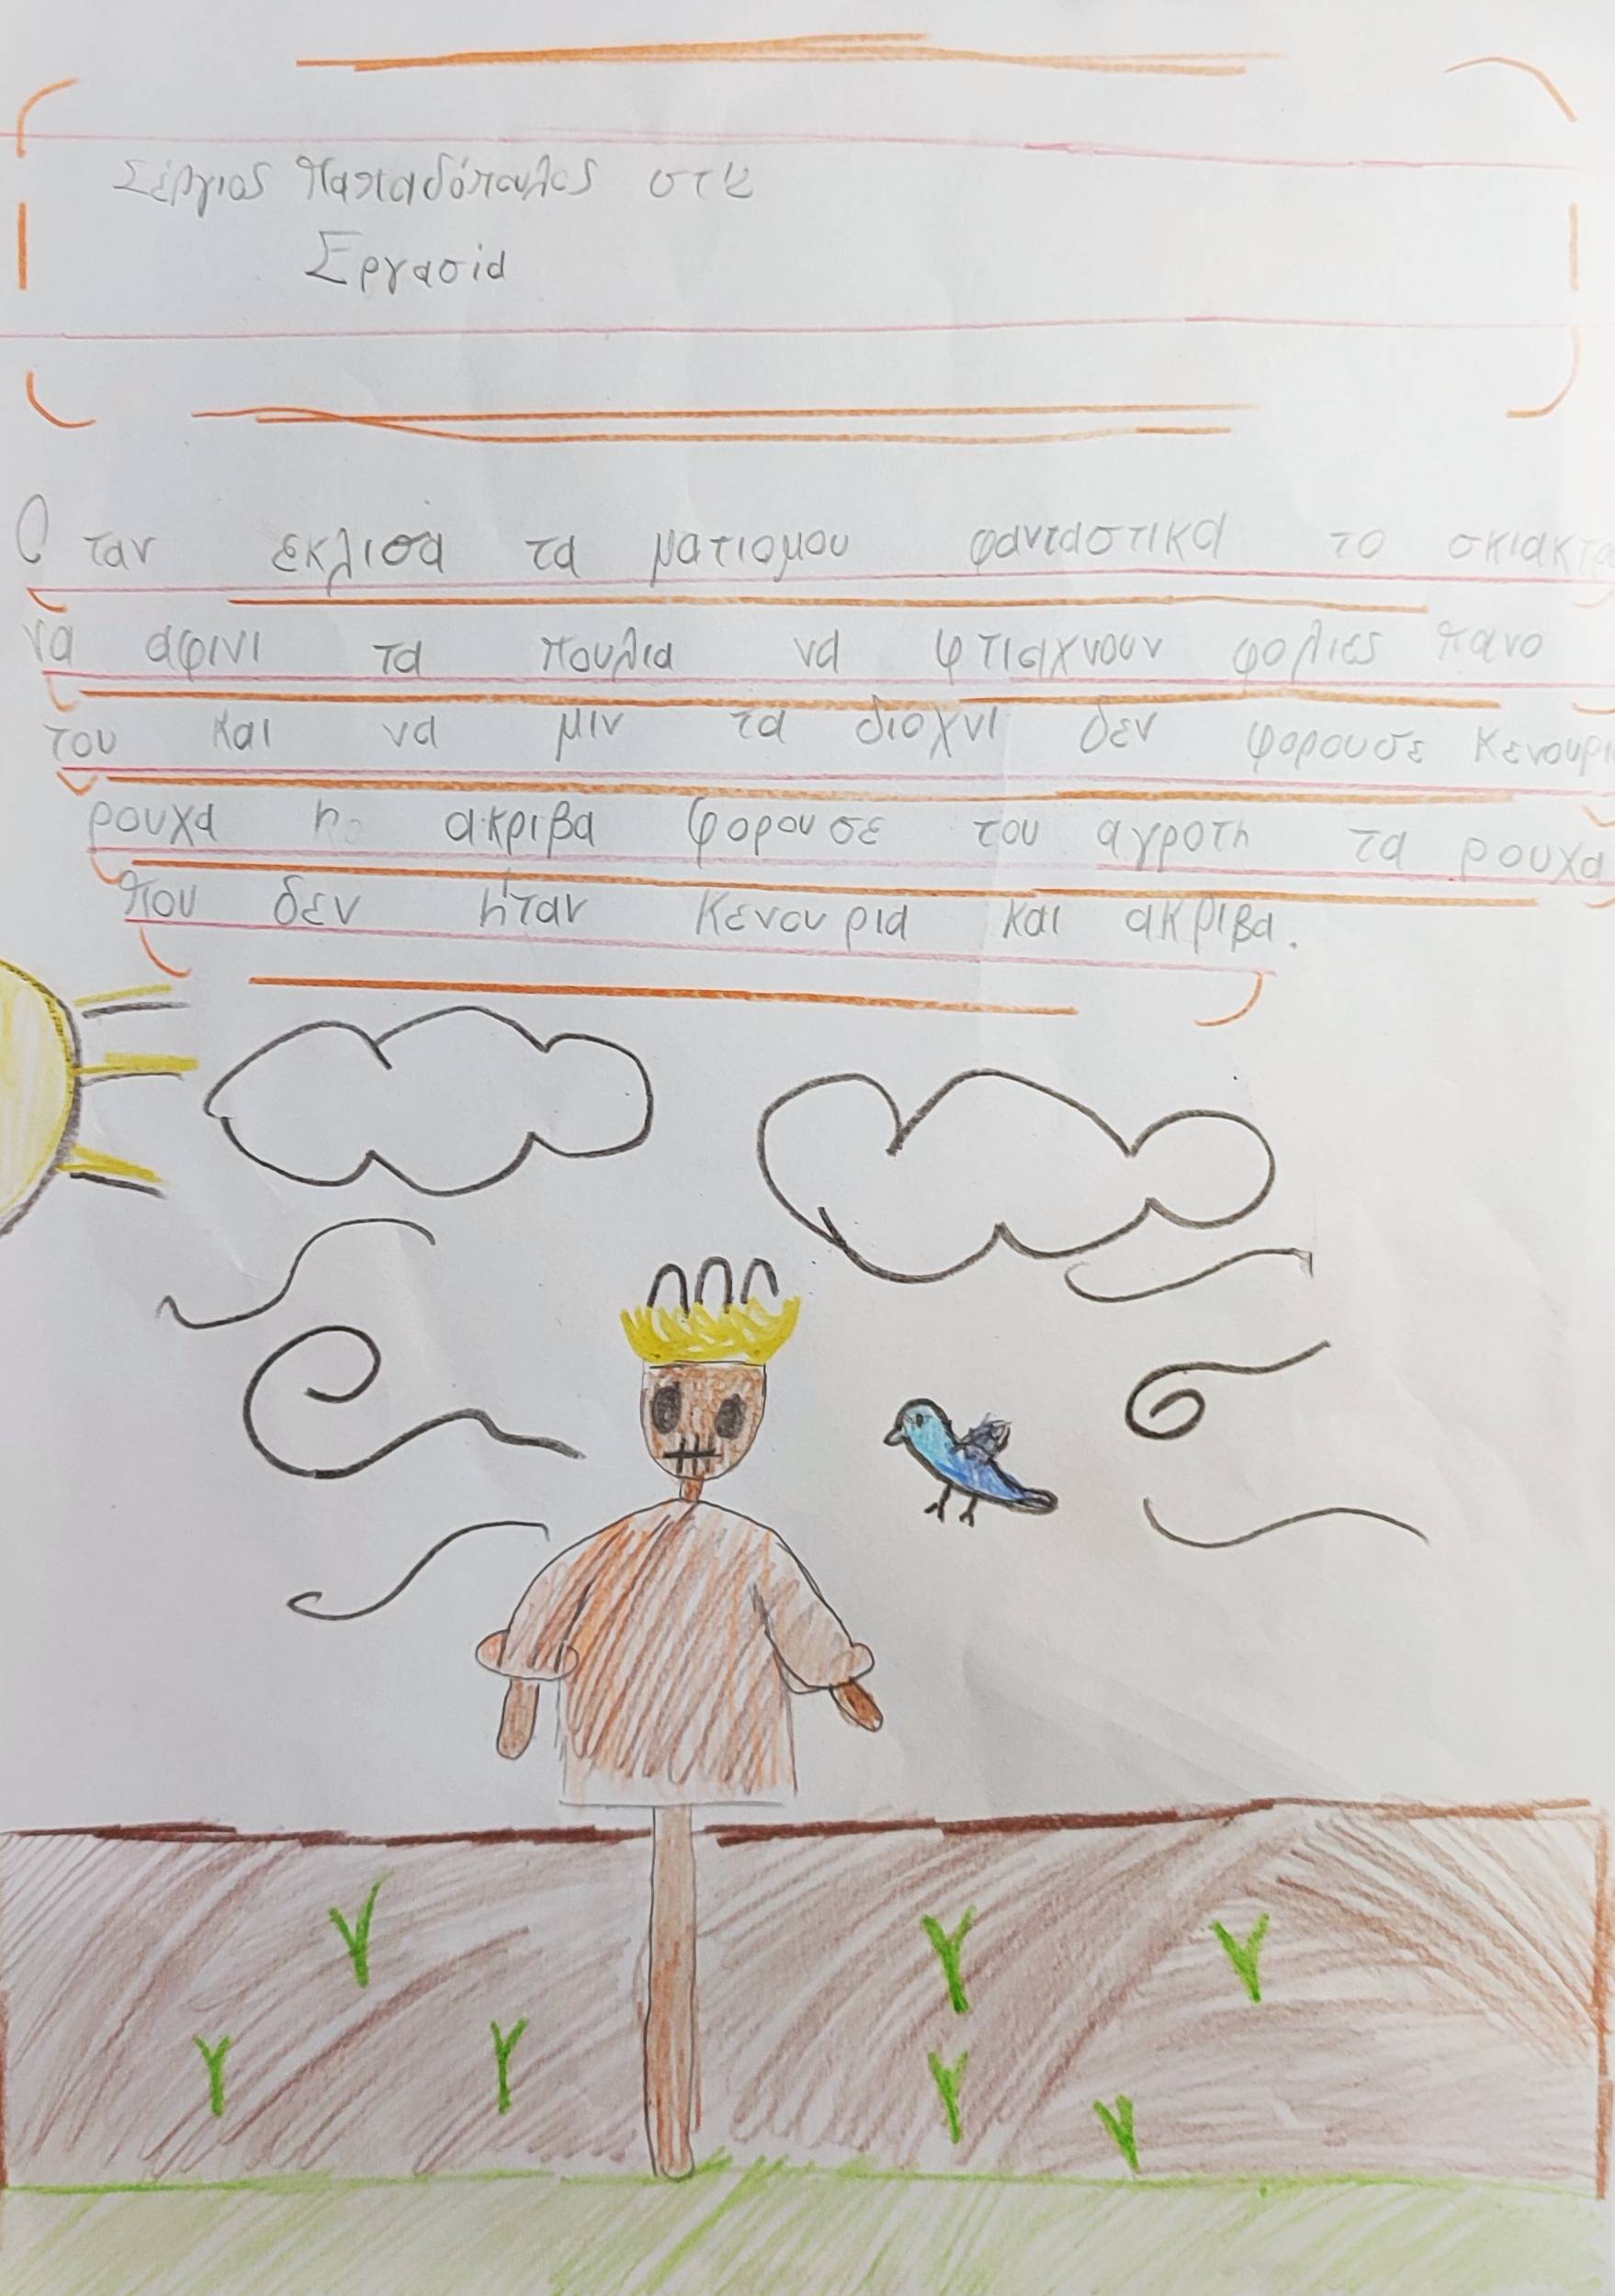 Σέργιος Παπαδόπουλος στ2
Εργασία
Οταν εκλισα τα ματιαμου φανταστικα το
να αφινι τα πουλια να φτιαχνουν φολιες πανο
του και να μιν τα διοχνι δεν φορουσε
ρουχα η ακριβα φορουσε του αγροτη τα ρουχα
που δεν ήταν κενουρια και ακριβα.